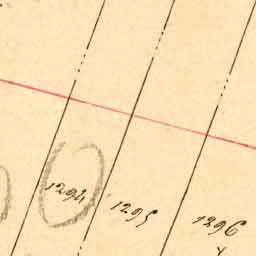 1294
1295
1296